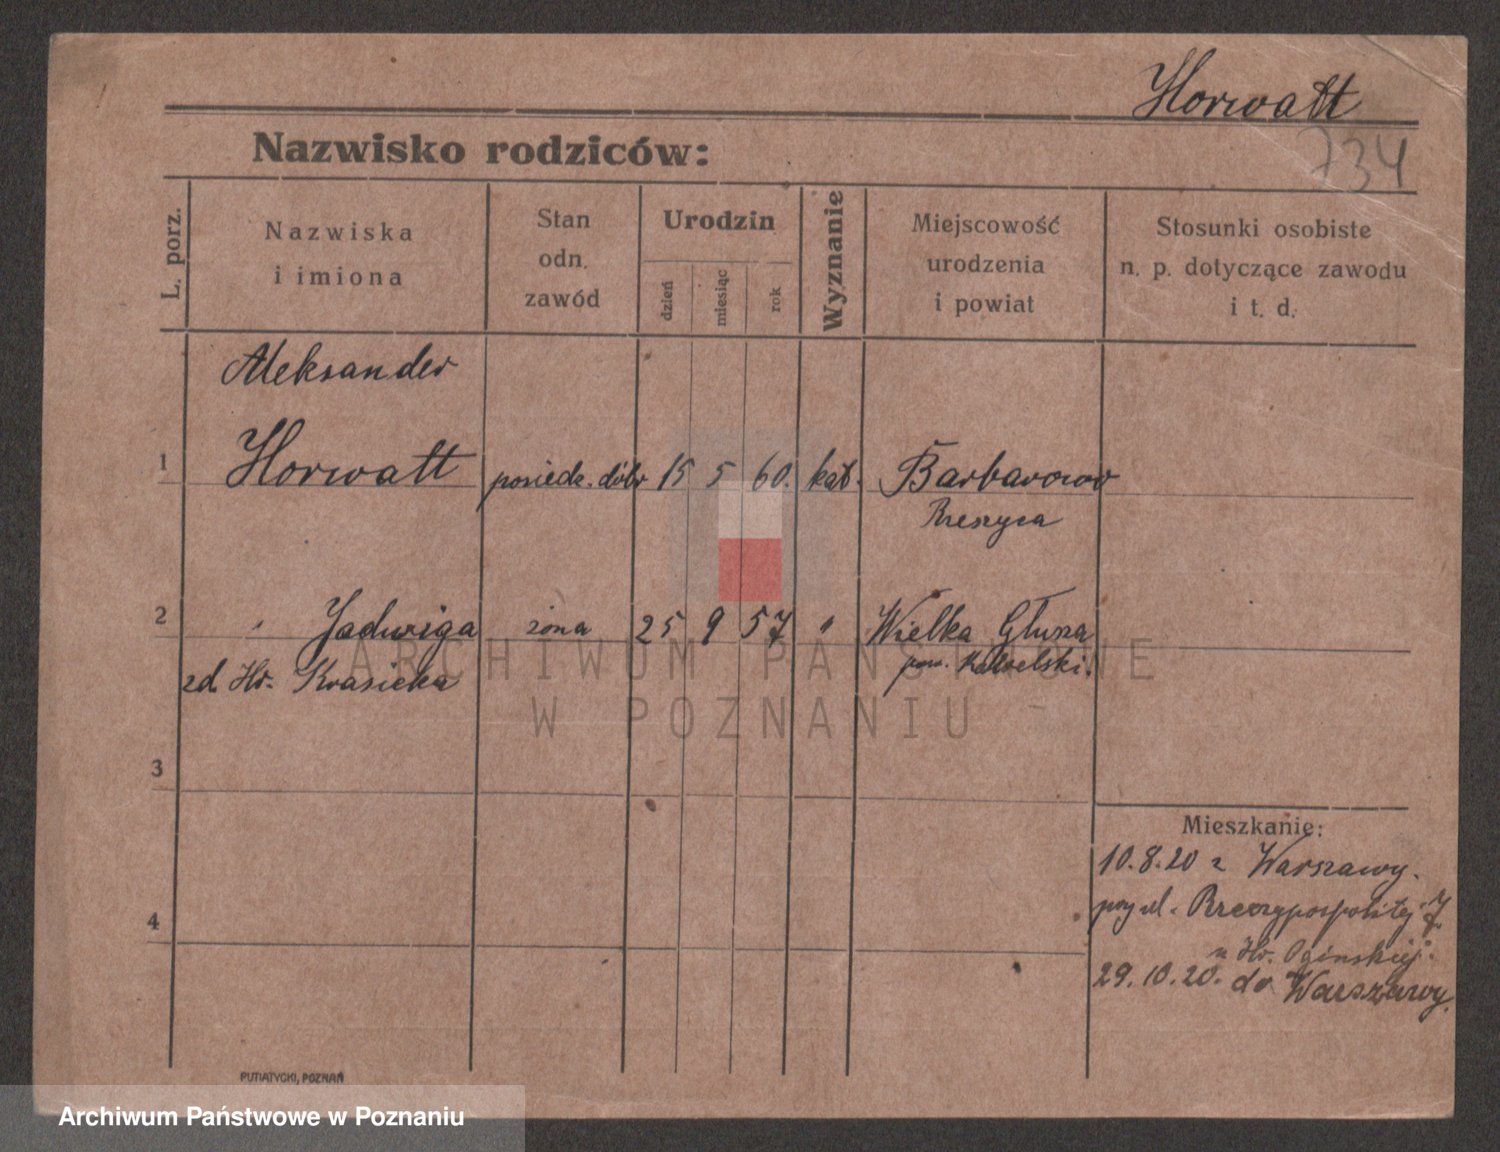 Horwatt
734
Nazwisko rodziców:
L. porz.
Nazwiska
i imiona
Stan
odn.
zawód
Urodzin
dzień
miesiąc
rok
Wyznanie
Miejscowość
urodzenia
i powiat
Stosunki osobiste
n. p. dotyczące zawodu
i t. d.
Aleksander
1 Horwatt posiedz. dóbr 15 5 60. kat. Barbarow
Rzeszyca
2 " Jadwiga żona 25 9 57 " Wielka Głusza
zd Hr. Krasicka pow.
ARCHIWUM PAŃSTWOWE
W POZNANIU
3
4
Mieszkanie:
10.8.20 z Warszawy.
przy ul. Rzeczypospolitej 7
u Hr. Ogińskiej.
29.10.20. do Warszawy.
PUTIATYCKI, POZNAŃ
Archiwum Państwowe w Poznaniu